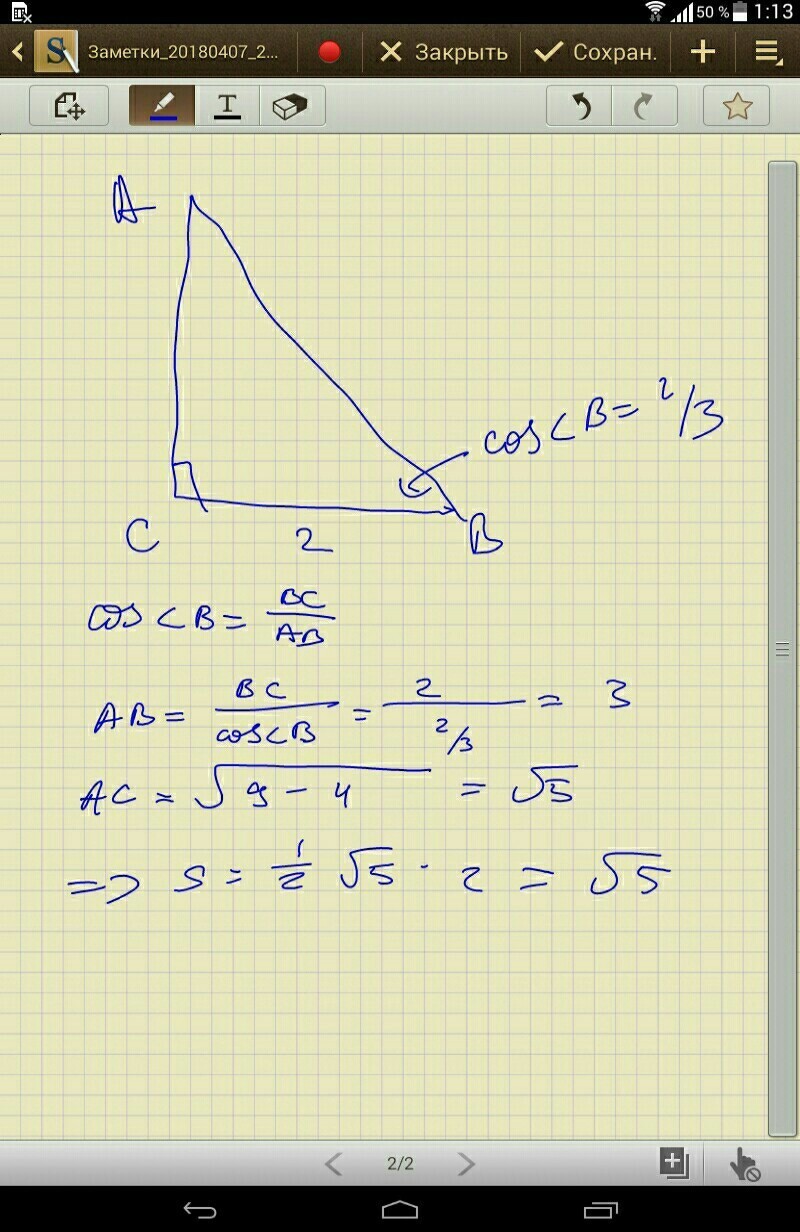 50 % 1:13
Заметки_20180407_2... Закрыть Сохран.
T
A
cos∠B = 2/3
C 2 B
cos∠B = BC/AB
AB = BC/cos∠B = 2/(2/3) = 3
AC = √(9 - 4) = √5
=> S = 1/2 √5 · 2 = √5
2/2